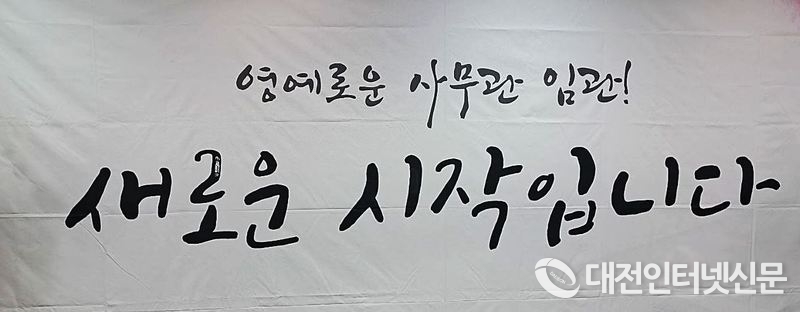 영예로운 사무관 임관!
새로운 시작입니다
대전인터넷신문